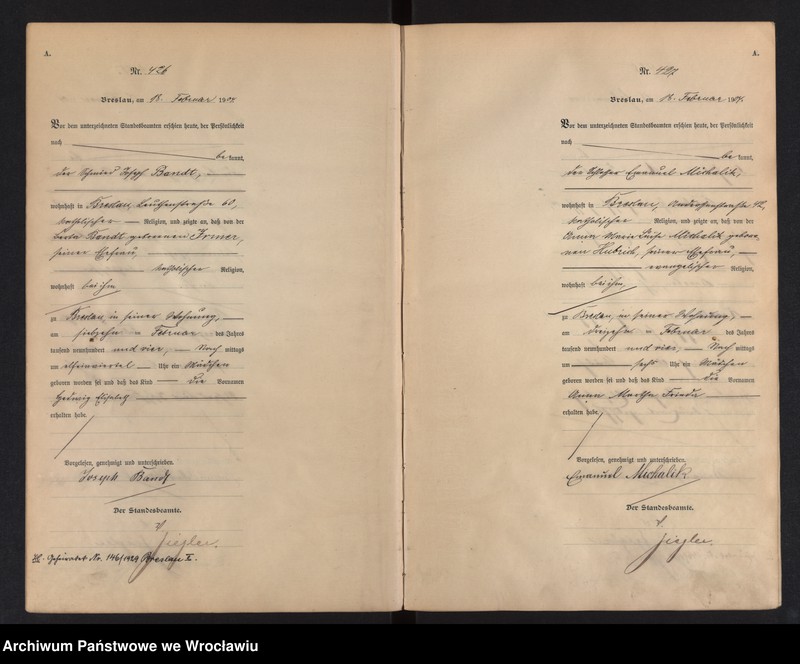 A.
Nr. 426
Breslau, am 18. Februar 1904.
Vor dem unterzeichneten Standesbeamten erschien heute, der Persönlichkeit
nach
be kannt,
der Schmied Joseph Bandt,
wohnhaft in Breslau, 60,
katholischer Religion, und zeigte an, daß von der
Bandt geborenen
seiner Ehefrau,
katholischer Religion,
wohnhaft bei ihm
zu Breslau, in seiner Wohnung,
am siebzehn ten Februar des Jahres
tausend neunhundert und vier, Nach mittags
um Uhr ein Mädchen
geboren worden sei und daß das Kind die Vornamen
Hedwig Elisabeth
erhalten habe.
Vorgelesen, genehmigt und unterschrieben.
Joseph Bandt
Der Standesbeamte.
Ziegler.
Geheiratet No. 146/1924 Breslau I.
A.
Nr. 427
Breslau, am 18. Februar 1904.
Vor dem unterzeichneten Standesbeamten erschien heute, der Persönlichkeit
nach
be kannt,
der Schlosser Emanuel Michalik,
wohnhaft in Breslau,
katholischer Religion, und zeigte an, daß von der
Anna Maria Michalik gebore-
nen Hubrich, seiner Ehefrau,
evangelischer Religion,
wohnhaft bei ihm
zu Breslau, in seiner Wohnung,
am ten Februar des Jahres
tausend neunhundert und vier, Nach mittags
um sechs Uhr ein Mädchen
geboren worden sei und daß das Kind die Vornamen
Anna Martha Frieda
erhalten habe.
Vorgelesen, genehmigt und unterschrieben.
Emanuel Michalik
Der Standesbeamte.
Ziegler.
Archiwum Państwowe we Wrocławiu